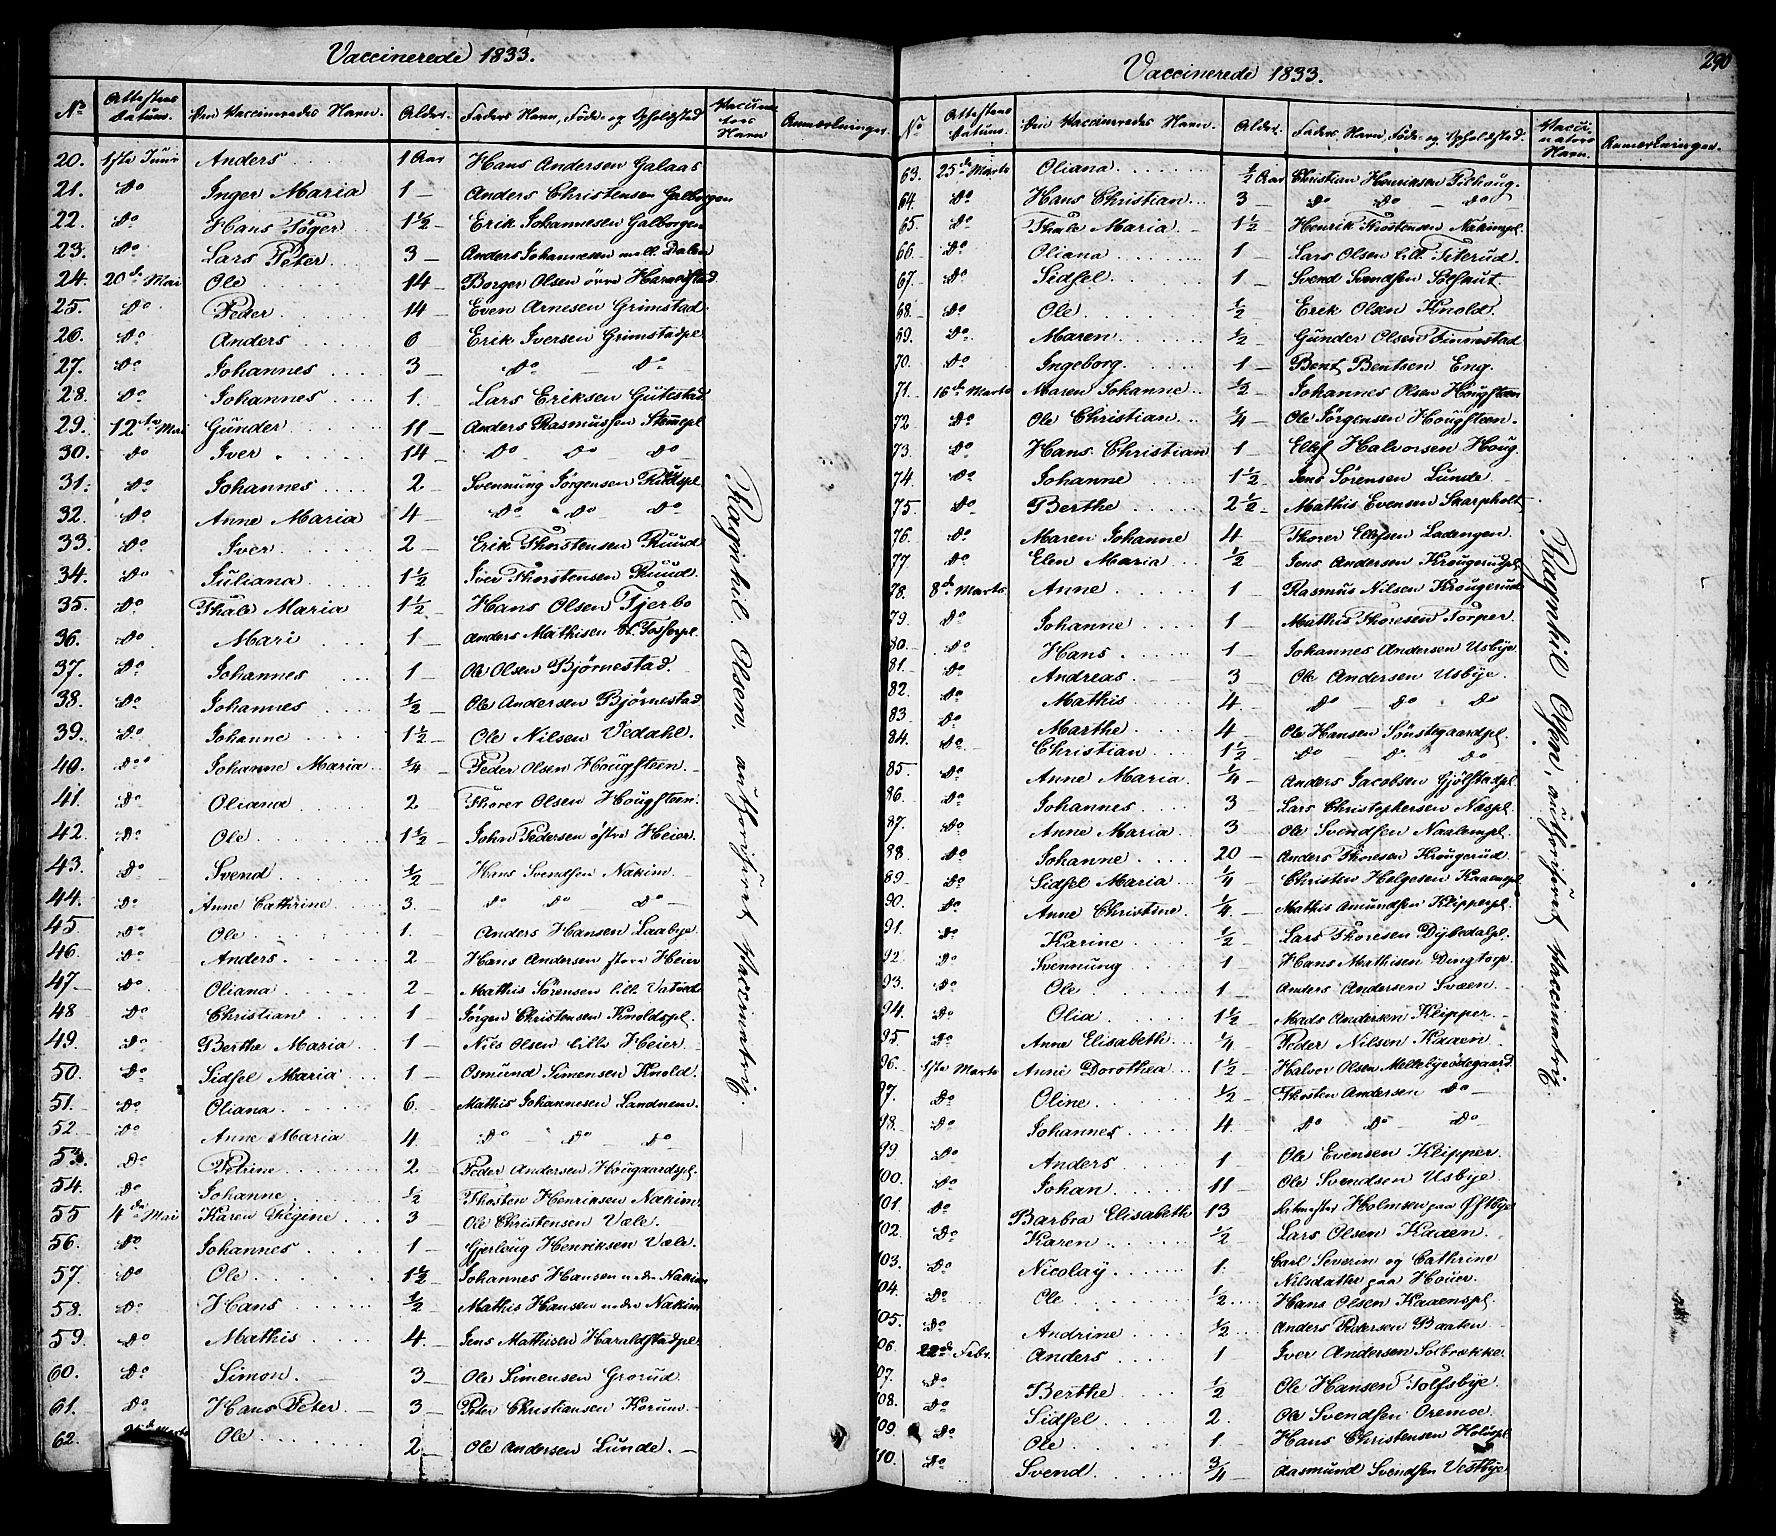 Vaccinerede 1833.
No Attestens Datum. Den Vaccineredes Navn. Alder. Faders Navn, Føde- og Opholdsted Vaccina- tors Navn Anmerkninger
20. 1ste Juni Anders 1 Aar Hans Andersen Galaas
21. Do Inger Maria 1 — Anders Christensen Galborgen
22. Do Hans Tøger 1½ — Erik Johannesen Galborgen
23. Do Lars Peter 3 — Anders Johannesen mell. Dalen
24. 20de Mai Ole 14 — Borger Olsen øvre Haraldstad
25. Do Peder 14 — Even Arnesen Grimstad
26. Do Anders 6 Erik Iversen Grimstadpl
27. Do Johannes 3 — Do — Do
28. Do Johannes 1. Lars Eriksen Gutestad
29. 12te Mai Gunder 11 — Anders Rasmussen
30. Do Iver 14 Do Do Do
31. Do Johannes 2 Svennung Jørgensen Ruudspl
32. Do Anne Maria 4 — Do Do Do
33. Do Iver 2 — Erik Thorstensen Ruud
34. Do Juliana 1½ Iver Thorstensen Ruud.
35. Do Thale Maria 1½ — Hans Olsen Tjerbo
36. Do Mari 1 — Anders Mathisen
37. Do Johannes 1 — Ole Olsen Bjørnestad
38. Do Johannes ½ — Ole Andersen Bjørnestad
39. Do Johanne 1½ — Ole Nilsen Vedahl.
40. Do Johanne Maria ¼ Peder Olsen Hougsteen.
41. Do Oliana 2 Thorer Olsen Hougsteen.
42. Do Ole 1½ — John Pedersen østre Heier
43. Do Svend ½ — Hans Svendsen Nakim
44. Do Anne Cathrine 3. Do Do — Do —
45 Do Ole 1. Anders Hansen Laabye
46. Do Anders 2 — Hans Andersen store Heier
47. Do Oliana 2 — Mathis Sørensen lille
48 Do Christian 1 Jørgen Christensen Knoldspl.
49. Do Berthe Maria 1 — Nils Olsen lille Heier
50. Do Sidsel Maria 1 — Osmund Simensen Knold.
51. Do Oliana 6. — Mathis Johannesen Landnem.
52. Do Anne Maria 4. — Do — Do — Do
53. Do Petrine 2 — Peder Andersen Hougaardspl.
54. Do Johanne ½ — Thosten Henriksen Nakim.
55 4de Mai Karen Regine 3 — Ole Christensen Væle.
56. Do Johannes 1 — Gjerloug Henriksen Væle.
57. Do Ole 1½ Johannes Hansen nedre Nakim
58. Do Hans ½ — Mathis Hansen nedre Nakim
59. Do Mathis 4. — Jens Mathisen Haraldstadpl
60. Do Simon 3 — Ole Simensen Grorud.
61. Do Hans Peter 3 — Peter Christiansen Korum
62. 25de Marts Ole 2 — Ole Andersen Lunde. —
Ragnhil Olsen, authoriseret Vaccinatriz.
Vaccinerede 1833.
290
No Attestens Datum. Den Vaccineredes Navn. Alder. Faders Navn, Føde- og Opholdsted. Vacci- nators Navn. Anmerkninger.
63. 25de Marts Oliana ½ Aar Christian Henriksen
64. Do Hans Christian 3 — Do Do — Do
65. Do Thale Maria 1½ Henrik Thostensen Nakimpl.
66. Do Oliana 1 — Lars Olsen
67. Do Sidsel 1 — Svend Svendsen
68. Do Ole ½ Erik Olsen Knold.
69. Do Maren ½ — Gunder Olsen Finnestad
70. Do Ingeborg 1 — Bent Bentsen Eng.
71. 16de Marts Maren Johanne ½ — Johannes Olsen Hougsteen
72. Do Ole Christian ¼ — Ole Jørgensen Hougsteen.
73. Do Hans Christian 1 Ellef Halvorsen Houg.
74. Do Johanne 1½ Jens Sørensen Lunde
75. Do Berthe 2½ — Mathis Evensen Skarpholt
76. Do Maren Johanne 4 Thorer Ellefsen Ladengen
77 Do Elen Maria ½ Jens Andersen Krougerudpl
78. 8de Marts Anne 1 Rasmus Nilsen Krougerud
79. Do Johanne 1 — Mathis Thoresen Torper
80. Do Hans 1 Johannes Andersen Usbye
81. Do Andreas 3 Ole Andersen Usbye.
82. Do Mathis 4 Do — Do Do
83. Do Marthe 4 — Ole Hansen Sønstegaardpl.
84. Do Christian 1½ Do Do Do
85. Do Anne Maria ¼ Anders Jacobsen Gjølstadpl
86. Do Johannes 3 Lars Christophersen Næspl.
87. Do Anne Maria 3 Ole Svendsen
88 Do Johanne 20 — Anders Thoresen Krougerud.
89. Do Sidsel Maria ¼ Christen Helgesen Kaaenspl
90. Do Anne Christine ¼ — Mathis Amundsen Klipperpl.
91. Do Karine ½ — Lars Thoresen Dybedalpl.
92. Do Svennung 1 Hans Mathisen Dingtorp
93. Do Ole 1 Anders Andersen Svæen
94. Do Olia 1½ — Mads Andersen Klipper.
95 Do Anne Elisabeth ¼ Peder Nilsen Kaaen.
96. 1ste Marts Anne Dorothea 1½ — Halvor Olsen Mellebyeødegaard
97. Do Oline ½ Thosten Andersen Do —
98. Do Johannes 4 Do Do — Do
99 Do Anders 1 Ole Evensen Klipper.
100. Do Johan 11 — Ole Svendsen Usbye.
101. Do Barbra Elisabeth 13 Holmsen paa Østbye
102. Do Karen ½ Lars Olsen Kaaen.
103. Do Nicolay 1. Carl Severin og Cathrine
Nilsdatter paa Houer.
104. Do Ole ½ Hans Olsen Kaaenspl
105. Do Andrine ½ Anders Pedersen Baaten
106. 22de Febr. Anders 1 Iver Andersen Solbrække.
107. Do Berthe ½ Ole Hansen Tolfsbye.
108. Do Sidsel 2. Ole Svendsen Oremoe.
109. Do Ole 1. Hans Christensen
110. Do Svend ¾ Aasmund Svendsen Vestbye
Ragnhil Olsen, authoriseret Vaccinatriz.